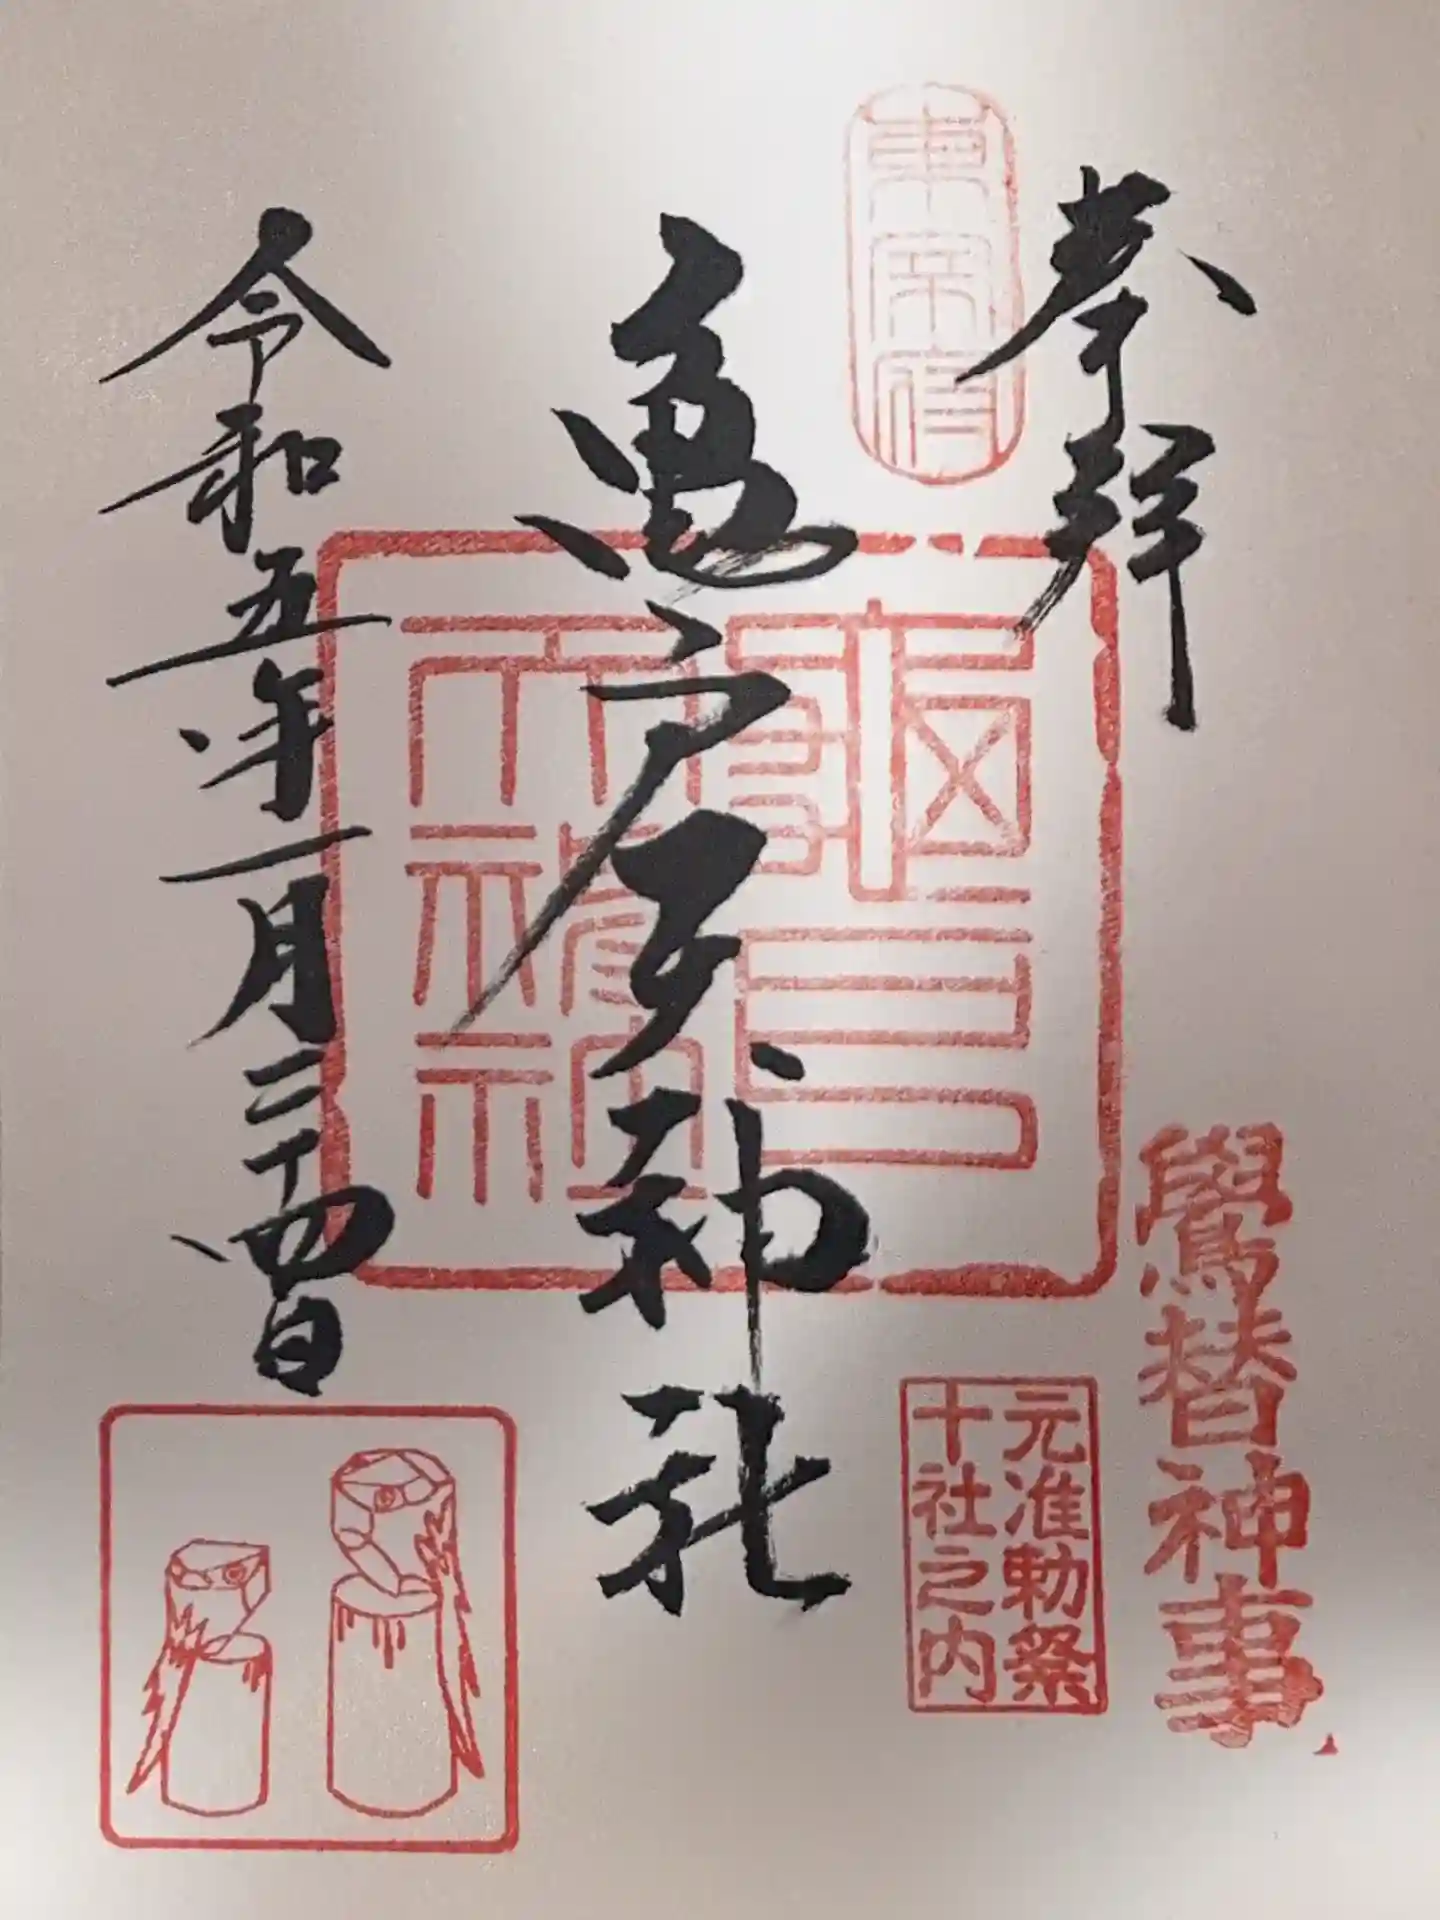 奉拝
東宰府
鷽替神事
亀戸天神社
元准勅祭
十社之内
令和五年一月二十四日